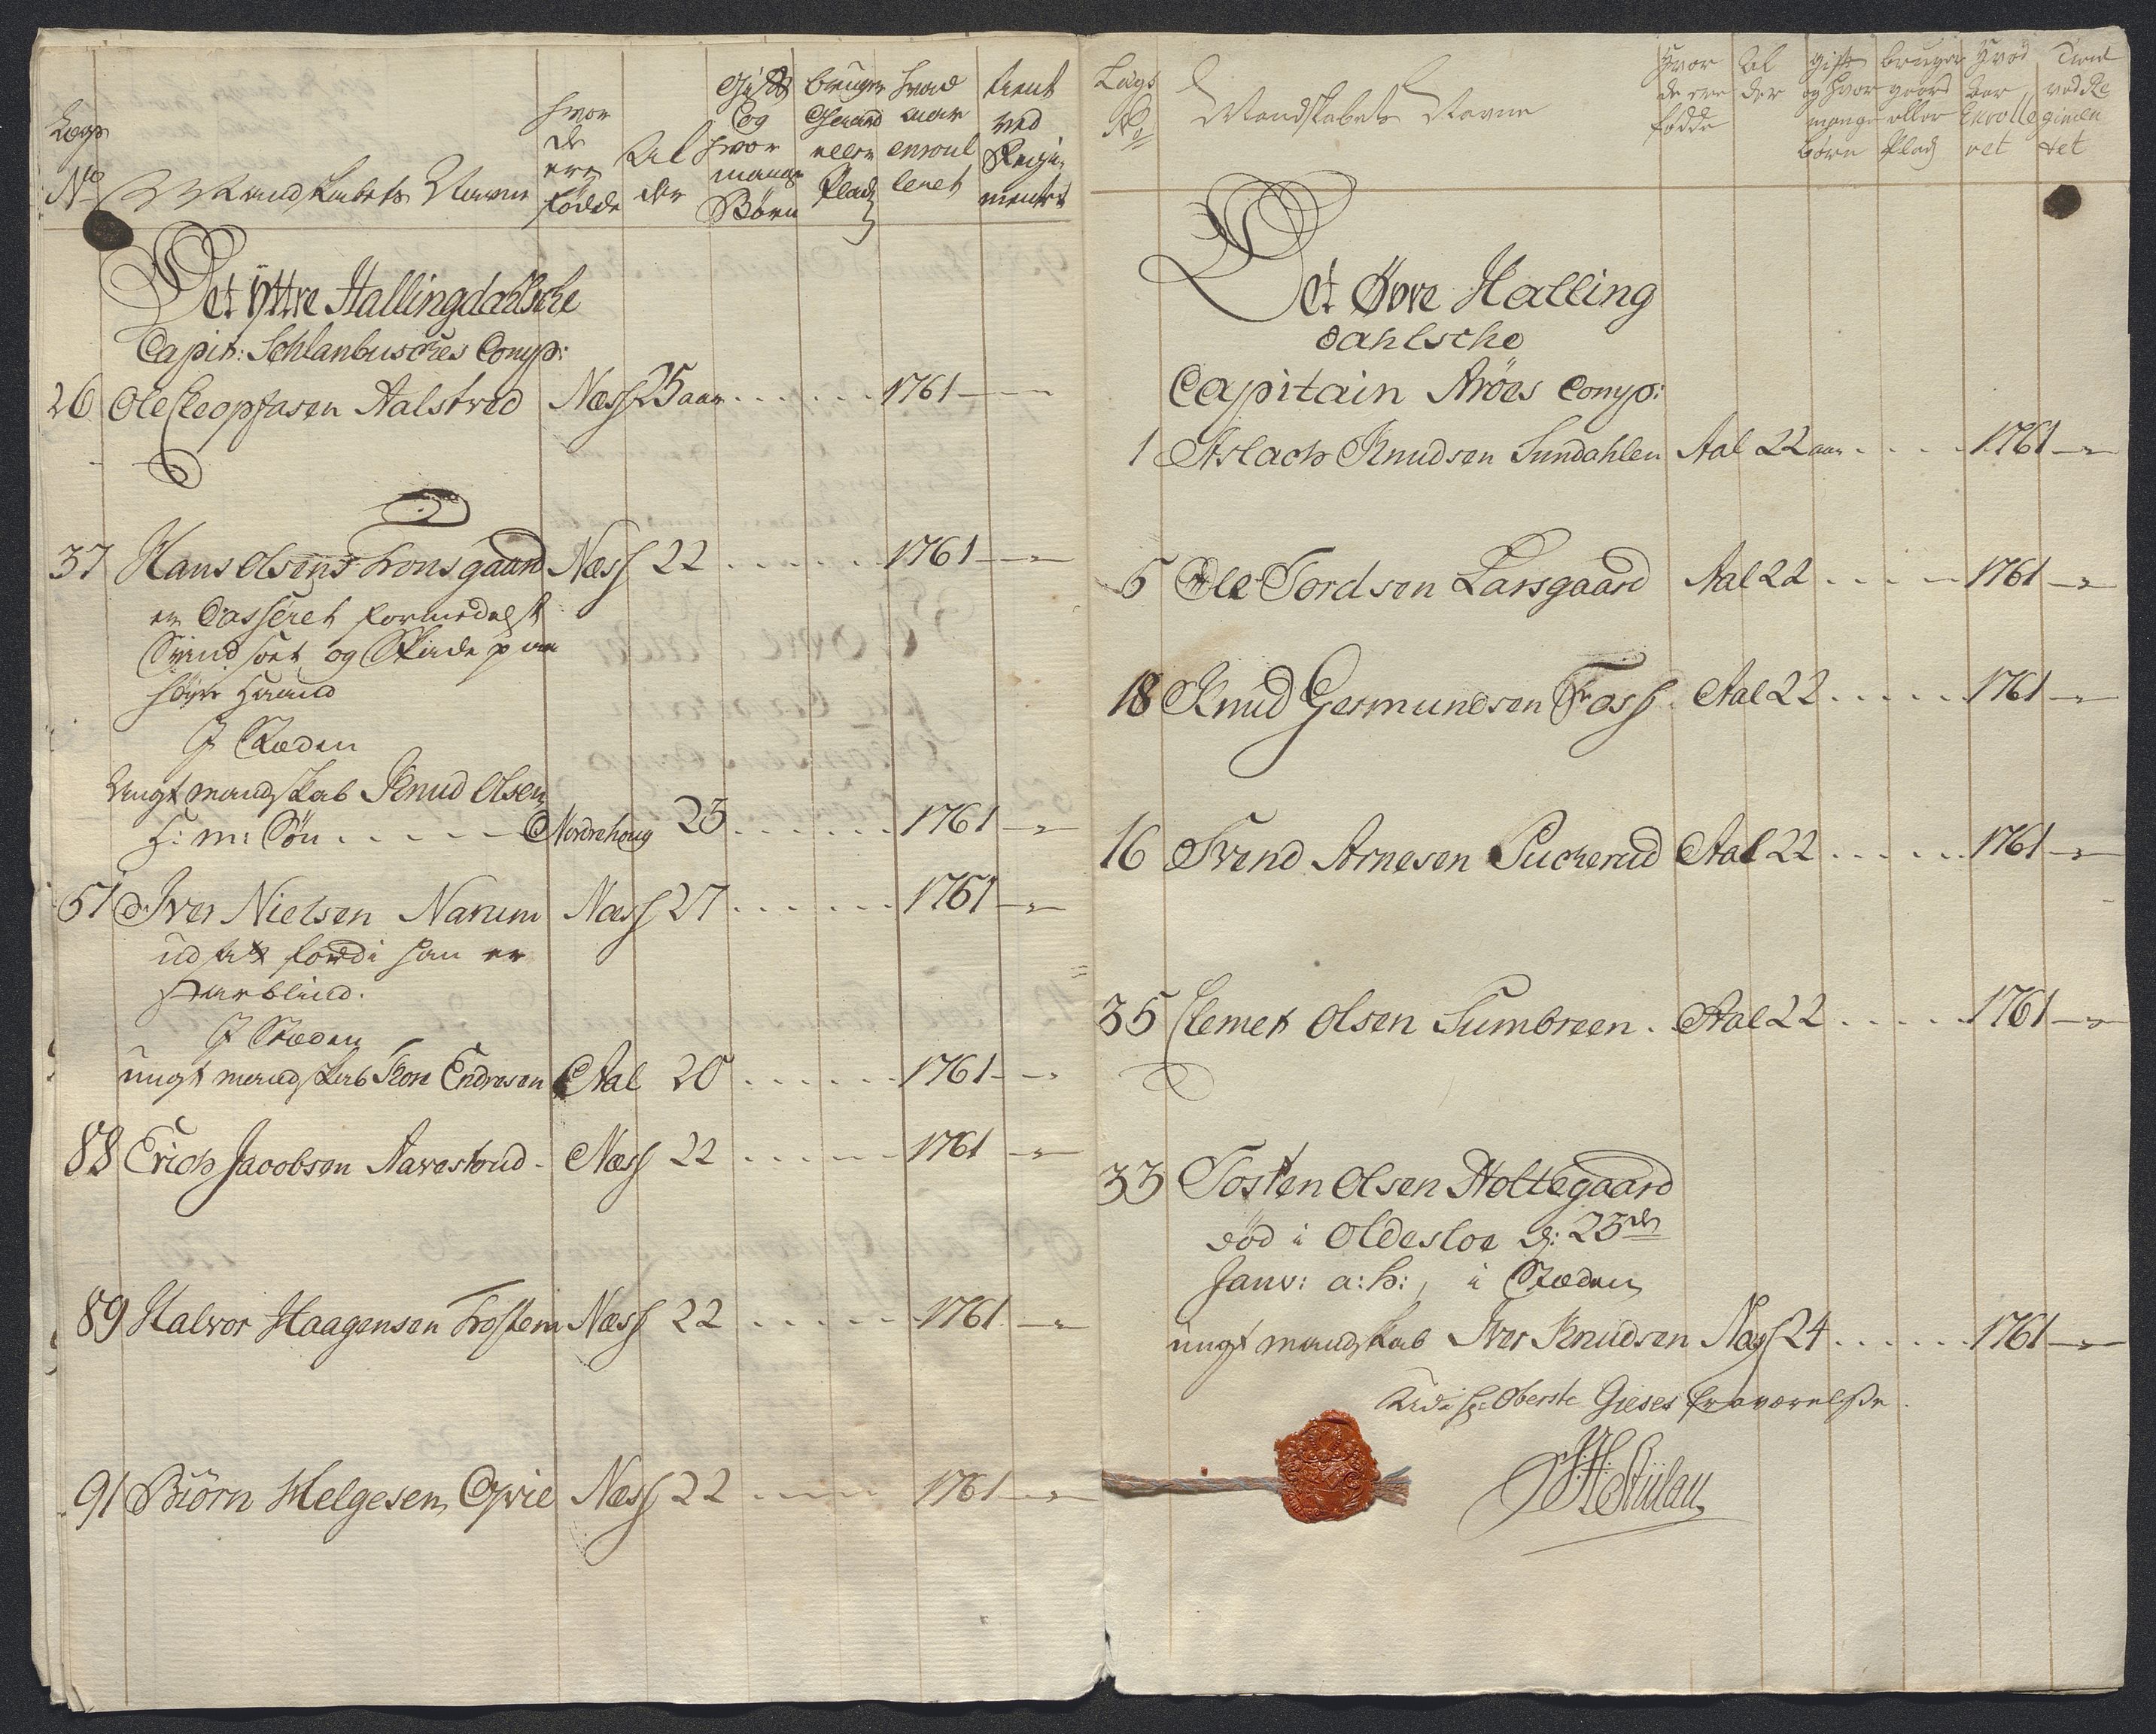 Lægs
No
Mandskabets Navne
hvor
de
ere
fødde
Al
der
Gift
Og
hvor
mange
Børn
bruger
Gaard
eller
Plads
hvad
aar
enroul
leret
tient
ved
Regi-
mentet
Det Yttre Hallingdahlsche
Capit: Schlanbusches Comp:
26 Ole Cleophasen Aalstved Næss 25 aar 1761
37 Hans Olsen Tronsgaard Næss 22 1761
er Casseret formedelst
Svindsoet og Skade paa
høyre Haand
I Stæden
Ungt mandskab Knud Olsen
H: m: Søn Nordrehoug 23 1761
51 Iver Nielsen Narum Næss 27 1761
udsatt fordi han er
stærblind.
I Stæden
ungt mandskab Tore Endresen Aal 20 1761
88 Erich Jacobsen Aavestrud Næss 22 1761
89 Halvor Haagensen Trostem Næss 22 1761
91 Biørn Helgesen Opvie Næss 22 1761
Lægs
No
Mandskabets Navne
Hvor
de ere
fødde
Al
der
gift
og hvor
mange
børn
bruger
gaard
eller
Plads
Hvad
Aar
Enrolle
ret
Tient
ved Re
gimen
tet
Det Øvre Halling
dahlsche
Capitain Arøes Comp:
1 Aslach Knudsen Sundahlen Aal 22 aar 1761
5 Ole Tordsen Larsgaard Aal 22 1761
18 Knud Germundsen Foss Aal 22 1761
16 Svend Arnesen Puckerud Aal 22 1761
35 Clemet Olsen Sumbreen Aal 22 1761
33 Tosten Olsen Holtegaard
død i Oldesloe d: 23de
Janv: a: h:, i Stæden
ungt mandskab Iver Knudsen Næss 24 1761
Udi Hr: Oberste Gieses fraværelse.